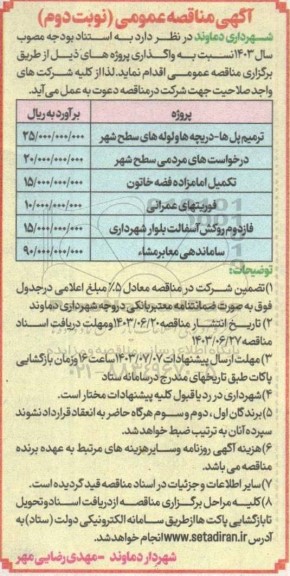 آگهی مناقصه عمومی (نوبت دوم)
شهرداری دماوند در نظر دارد به استناد بودجه مصوب
سال ۱۴۰۳ نسبت به واگذاری پروژه های ذیل از طریق
برگزاری مناقصه عمومی اقدام نماید. لذا از کلیه شرکت های
واجد صلاحیت جهت شرکت در مناقصه دعوت به عمل می آید.
پروژه برآورد به ریال
ترمیم پل ها-دریچه ها و لوله های سطح شهر ۲۵/۰۰۰/۰۰۰/۰۰۰
درخواست های مردمی سطح شهر ۲۰/۰۰۰/۰۰۰/۰۰۰
تکمیل امامزاده فضه خاتون ۱۵/۰۰۰/۰۰۰/۰۰۰
فوریتهای عمرانی ۱۰/۰۰۰/۰۰۰/۰۰۰
فاز دوم روکش آسفالت بلوار شهرداری ۱۵/۰۰۰/۰۰۰/۰۰۰
ساماندهی معابر مشاء ۹۰/۰۰۰/۰۰۰/۰۰۰
توضیحات:
۱) تضمین شرکت در مناقصه معادل ۵٪ مبلغ اعلامی در جدول
فوق به صورت ضمانتنامه معتبر بانکی در وجه شهرداری دماوند
۲) تاریخ انتشار مناقصه ۱۴۰۳/۰۶/۲۰ ومهلت دریافت اسناد
مناقصه ۱۴۰۳/۰۶/۲۷
۳) مهلت ارسال پیشنهادات ۱۴۰۳/۰۷/۰۷ ساعت ۱۶ وزمان بازگشایی
پاکات طبق تاریخهای مندرج در سامانه ستاد
۴) شهرداری در رد یا قبول کلیه پیشنهادات مختار است.
۵) برندگان اول، دوم و سوم هرگاه حاضر به انعقاد قرارداد نشوند
سپرده آنان به ترتیب ضبط خواهد شد.
۶) هزینه آگهی روزنامه و سایر هزینه های مرتبط به عهده برنده
مناقصه می باشد.
۷) سایر اطلاعات و جزئیات در اسناد مناقصه قید گردیده است.
۸) کلیه مراحل برگزاری مناقصه از دریافت اسناد و تحویل
تا بازگشایی پاکت ها از طریق سامانه الکترونیکی دولت (ستاد) به
آدرس www.setadiran.ir انجام خواهد شد.
شهردار دماوند - مهدی رضایی مهر